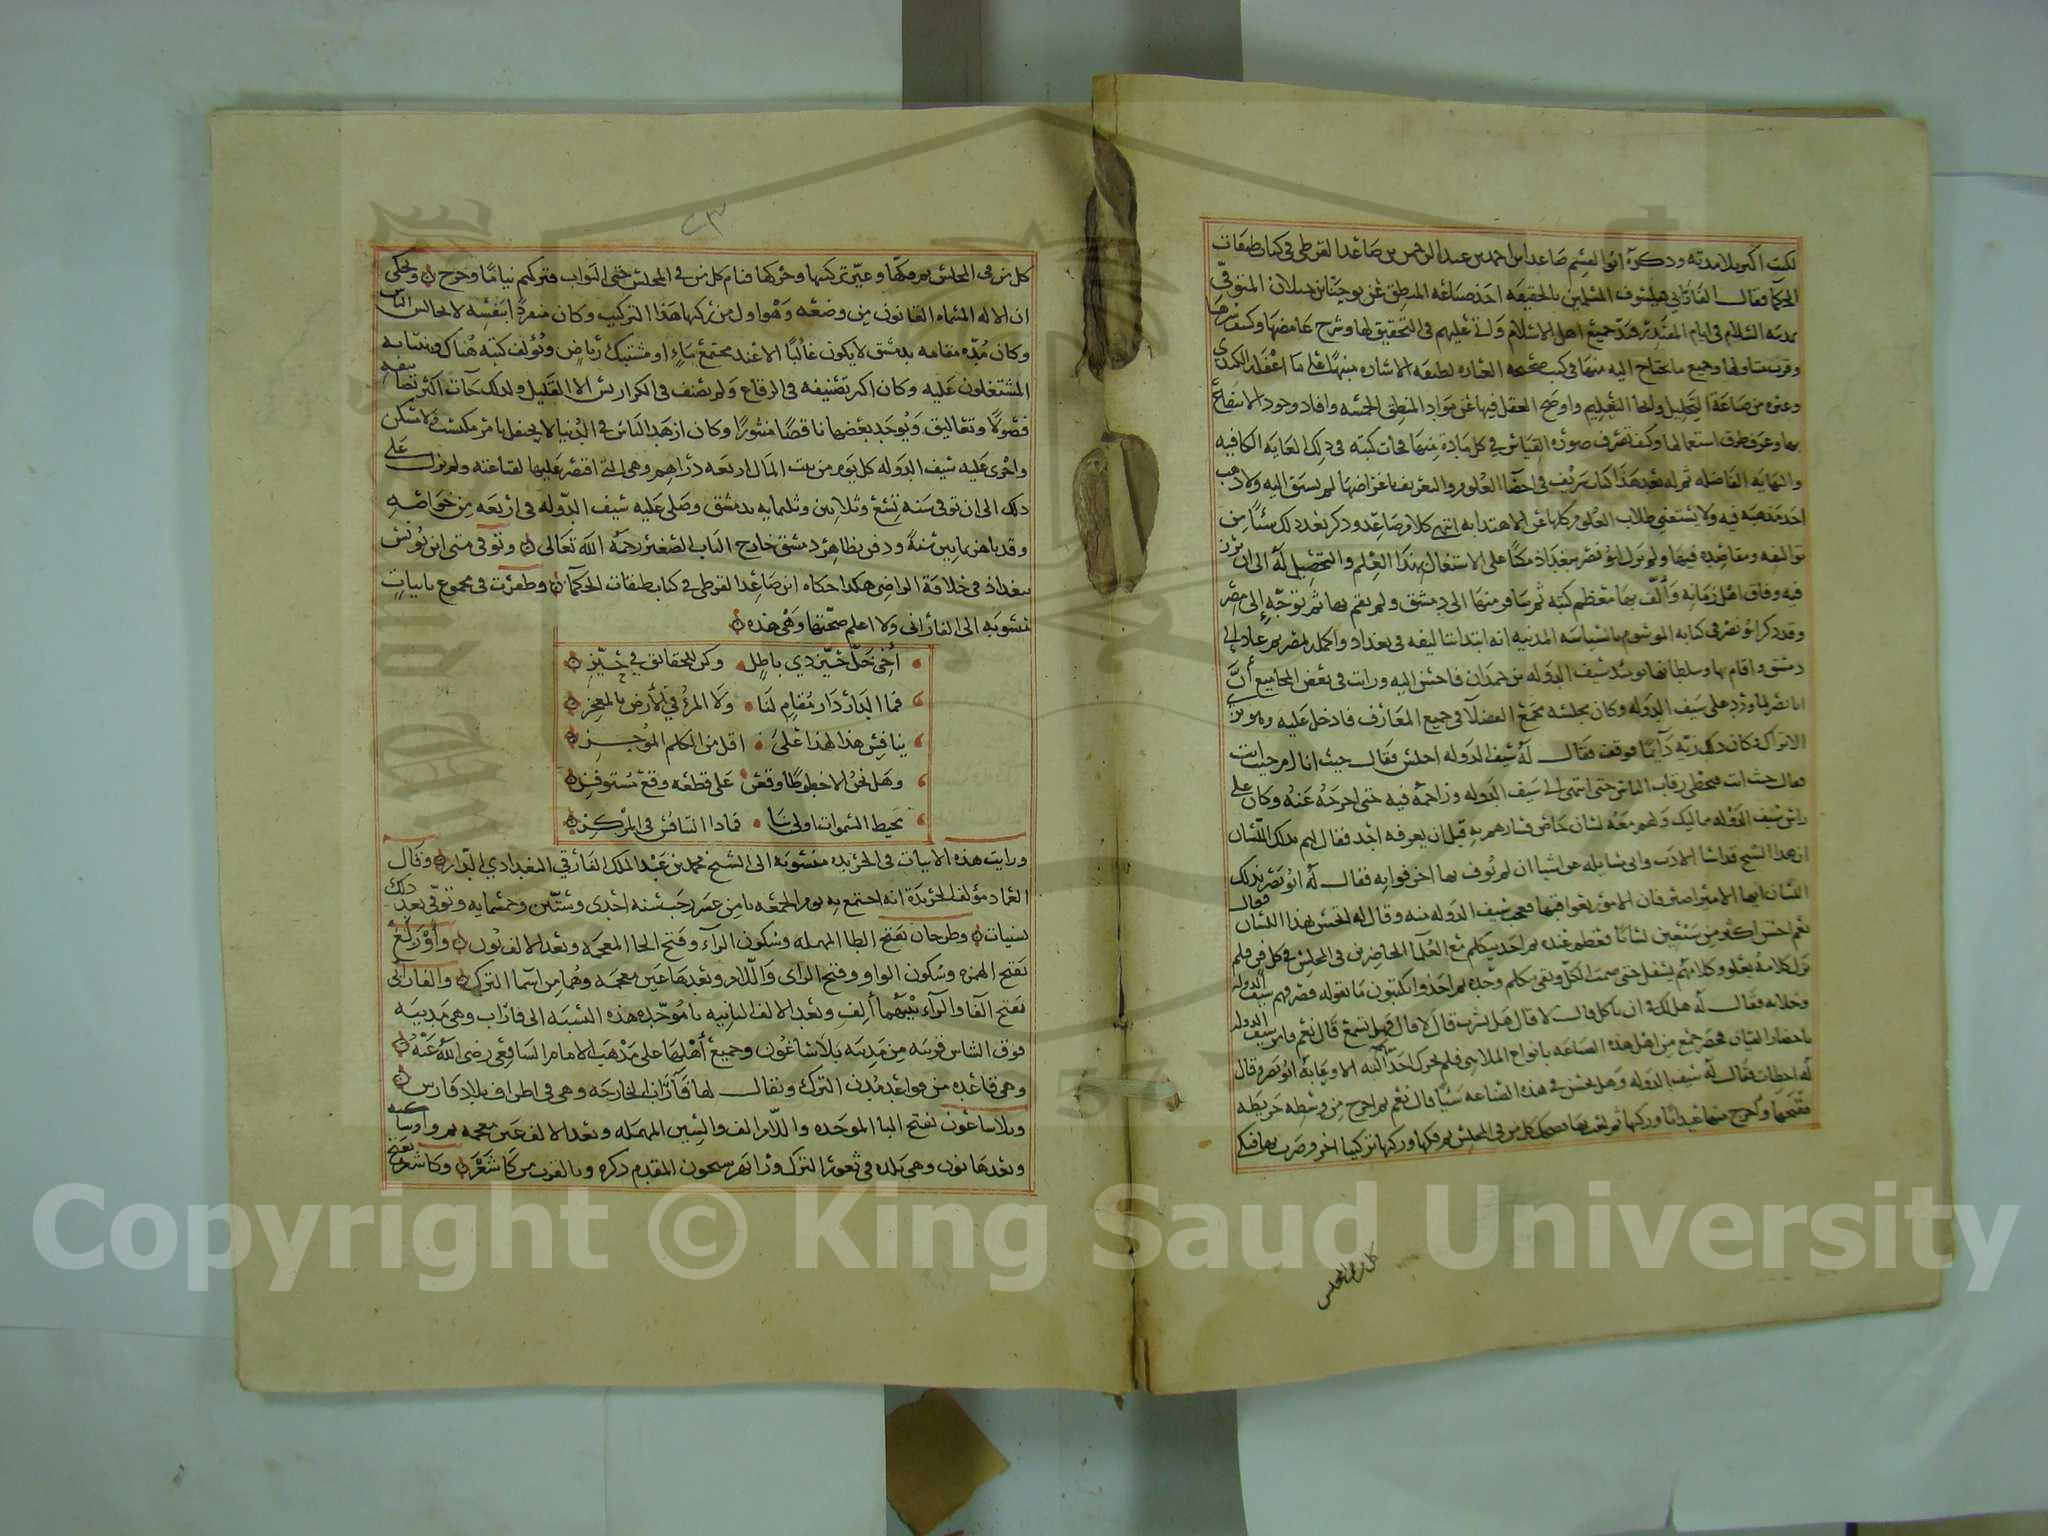 لكتب اكبر تلامذته وذكره ابو القسم صاعد ابن احمد بن عبد الرحمن بن صاعد القرطبي في كتاب طبقات
الحكما فقال الفارابي فيلسوف المسلمين بالحقيقه اخذ صناعة المنطق عن يوحنا بن جيلان المتوفي
بمدينة السلام في ايام المقتدر فبذ جميع اهل الاسلام واتى عليهم في التحقيق لها وشرح غامضها وكشف سرها
وقرب تناولها وجميع ما يحتاج اليه منها في كتب صحيحه العباره لطيفه الاشاره منبهة على ما اغفله الكندي
وغيره من صناعة التحليل وانحا التعليم واوضح العقل فيها عن مواد المنطق الخمسه وافاد وجود الانتفاع
بها وعرف طرق استعمالها وكيف تصرف صورة القياس في كل مادة منها فجات كتبه في ذلك الغايه الكافيه
والنهايه الفاضله ثم له بعد هذا كتاب شريف في احصا العلوم والتعريف باغراضها لم يسبق اليه ولا ذهب
احد مذهبه فيه ولا يستغني طلاب العلوم كلها عن الاهتدا به انتهى كلام صاعد وذكر بعد ذلك شيئا من
تواليفه ومقاصده فيها ولم يزل ابو نصر ببغداد مكبا على الاشتغال بهذا العلم والتحصيل له الى ان برز
فيه وفاق اهل زمانه وألف بها معظم كتبه ثم سافر منها الى دمشق ولم يقم بها ثم توجه إلى مصر
وقد ذكر ابو نصر في كتابه الموسوم بالسياسه المدنيه انه ابتدا بتاليفه في بغداد واكمله بمصر ثم عاد الى
دمشق واقام بها وسلطانها يومئذ سيف الدوله بن حمدان فاحسن اليه ورايت في بعض المجاميع أنّ
ابا نصر لما ورد على سيف الدوله وكان مجلسه مجمع الفضلا في جميع المعارف فادخل عليه وهو بزي
الاتراك وكان ذلك زيه دآئما فوقف فقال له سيف الدوله اجلس فقال حيث انا ام حيث انت
فقال حيث انت فتخطى رقاب الناس حتى انتهى الى سيف الدوله وزاحمه فيه حتى اخرجه عنه وكان على
راس سيف الدوله مماليك ولهم معه لسان خاص يسارهم به قبل ان يعرفه احد فقال لهم بذلك اللسان
ان هذا الشيخ قد اسا الادب واني سايله عن اشيا ان لم يوف بها اخرقوا به فقال له ابو نصر بذلك
اللسان ايها الامير اصبر فان الامور بعواقبها فعجب سيف الدوله منه وقال له اتحسن بهذا اللسان فقال
نعم احسن اكثر من سبعين لسانا فعظم عنده ثم اخذ يتكلم مع العلما الحاضرين في المجلس في كل فن فلم
يزل كلامه يعلو وكلامهم يسفل حتى صمت الكل وبقي يتكلم وحده ثم اخذوا يكتبون ما يقوله فصرفهم سيف الدوله
وخلا به فقال له هل لك في ان تاكل قال لا قال فهل تشرب قال لا قال فهل تسمع قال نعم فامر سيف الدوله
باحضار القيان فحضر جميع من اهل هذه الصناعه بانواع الملاهي فلم يحرك احد الته الا وعابه ابو نصر وقال
له اخطات فقال له سيف الدوله وهل تحسن في هذه الصناعه شيئا قال نعم ثم اخرج من وسطه خريطه
ففتحها واخرج منها عيدانا وركبها ثم لعب بها فضحك كل من في المجلس ثم فكها وركبها تركيبا اخر وضرب بها فبكى
كل من في المجلس
٢٣
كل من في المجلس ثم فكها وغير تركيبها وحركها فنام كل من في المجلس حتى البواب فتركهم نياما وخرج ويحكى
ان الاله المسماه القانون من وضعه وهو اول من ركبها هذا التركيب وكان منفردا بنفسه لا يجالس الناس
وكان مدة مقامه بدمشق لا يكون غالبا الا عند مجتمع ماء او مشتبك رياض ويولف كتبه هناك وينتابه
المشتغلون عليه وكان اكبر تصنيفه في الرقاع ولم يصنف في الكراريس الا القليل ولذلك جآت اكثر تصانيفه
فصولا وتعاليق ويوجد بعضها ناقصا منثورا وكان ازهد الناس في الدنيا لا يحتفل بامر مكسب ولا مسكن
واجرى عليه سيف الدوله كل يوم من بيت المال اربعه دراهم وهي التي اقتصر عليها لقناعته ولم يزل على
ذلك الى ان توفي سنة تسع وثلاثين وثلثمايه بدمشق وصلى عليه سيف الدوله في اربعه من خواصه
وقد ناهز ثمانين سنة ودفن بظاهر دمشق خارج الباب الصغير رحمه الله تعالى وتوفي متى ابن يونس
ببغداد في خلافة الراضي هكذا حكاه ابن صاعد القرطبي في كتاب طبقات الحكمآ وظفرت في مجموع بابيات
منسوبة الى الفارابي ولا اعلم صحتها وهي هذه
أخي خلّ حيّز ذي باطل وكن للحقائق في حيّز
فما الدار دار مُقام لنا ولا المرء في الأرض بالمعجز
ينافس هذا لهذا على اقل من الكلم الموجز
وهل نحن الا خطوط وقعن على نقطه وقع مستوفز
محيط السموات اولى بنا فماذا التنافس في المركز
ورايت هذه الابيات في الخريده منسوبة الى الشيخ محمد بن عبد الملك الفارقي البغدادي الدار وقال
العماد مؤلف الخريدة انه اجتمع به يوم الجمعه ثامن عشر رجب سنه احدى وستين وخمسمايه وتوفي بعد ذلك
بسنيات وطرخان بفتح الطا المهمله وسكون الرآء وفتح الخا المعجمه وبعد الالف نون وأوزلغ
بفتح الهمزه وسكون الواو وفتح الزاى واللام وبعدها غين معجمه وهما من اسما الترك والفارابي
بفتح الفآ والرآء بينهما ألف وبعد الالف الثانيه با موحده هذه النسبه الى فاراب وهي مدينه
فوق الشاش قريبه من مدينه بلاساغون وجميع أهلها على مذهب الامام الشافعي رضي الله عنه
وهي قاعده من قواعد مدن الترك ويقال لها فآراب الخارجه وهي في اطراف بلاد فارس
وبلاساغون بفتح البا الموحده واللام الف والسين المهمله وبعد الالف غين معجمه ثم واو ساكنه
وبعدها نون وهي بلده في ثغور الترك ورا نهر سيحون المقدم ذكره وبالقرب من كاشغر وكاشغر بفتح
Copyright © King Saud University
1957